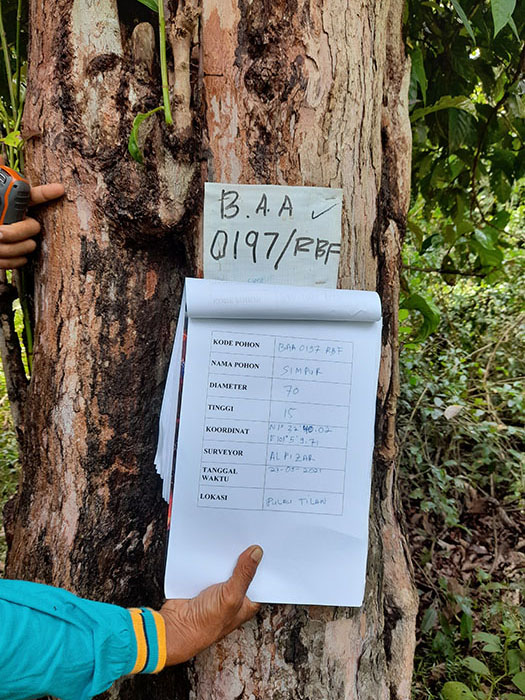 B.A.A ✓
0197/RBF
KODE POHON BAA 0197 RBF
NAMA POHON SIMPUR
DIAMETER 70
TINGGI 15
KOORDINAT N1° 22' 40.02
E 101° 5' 9.71
SURVEYOR ALPIZAR
TANGGAL 21-05-2021
WAKTU
LOKASI PULAU TILAN